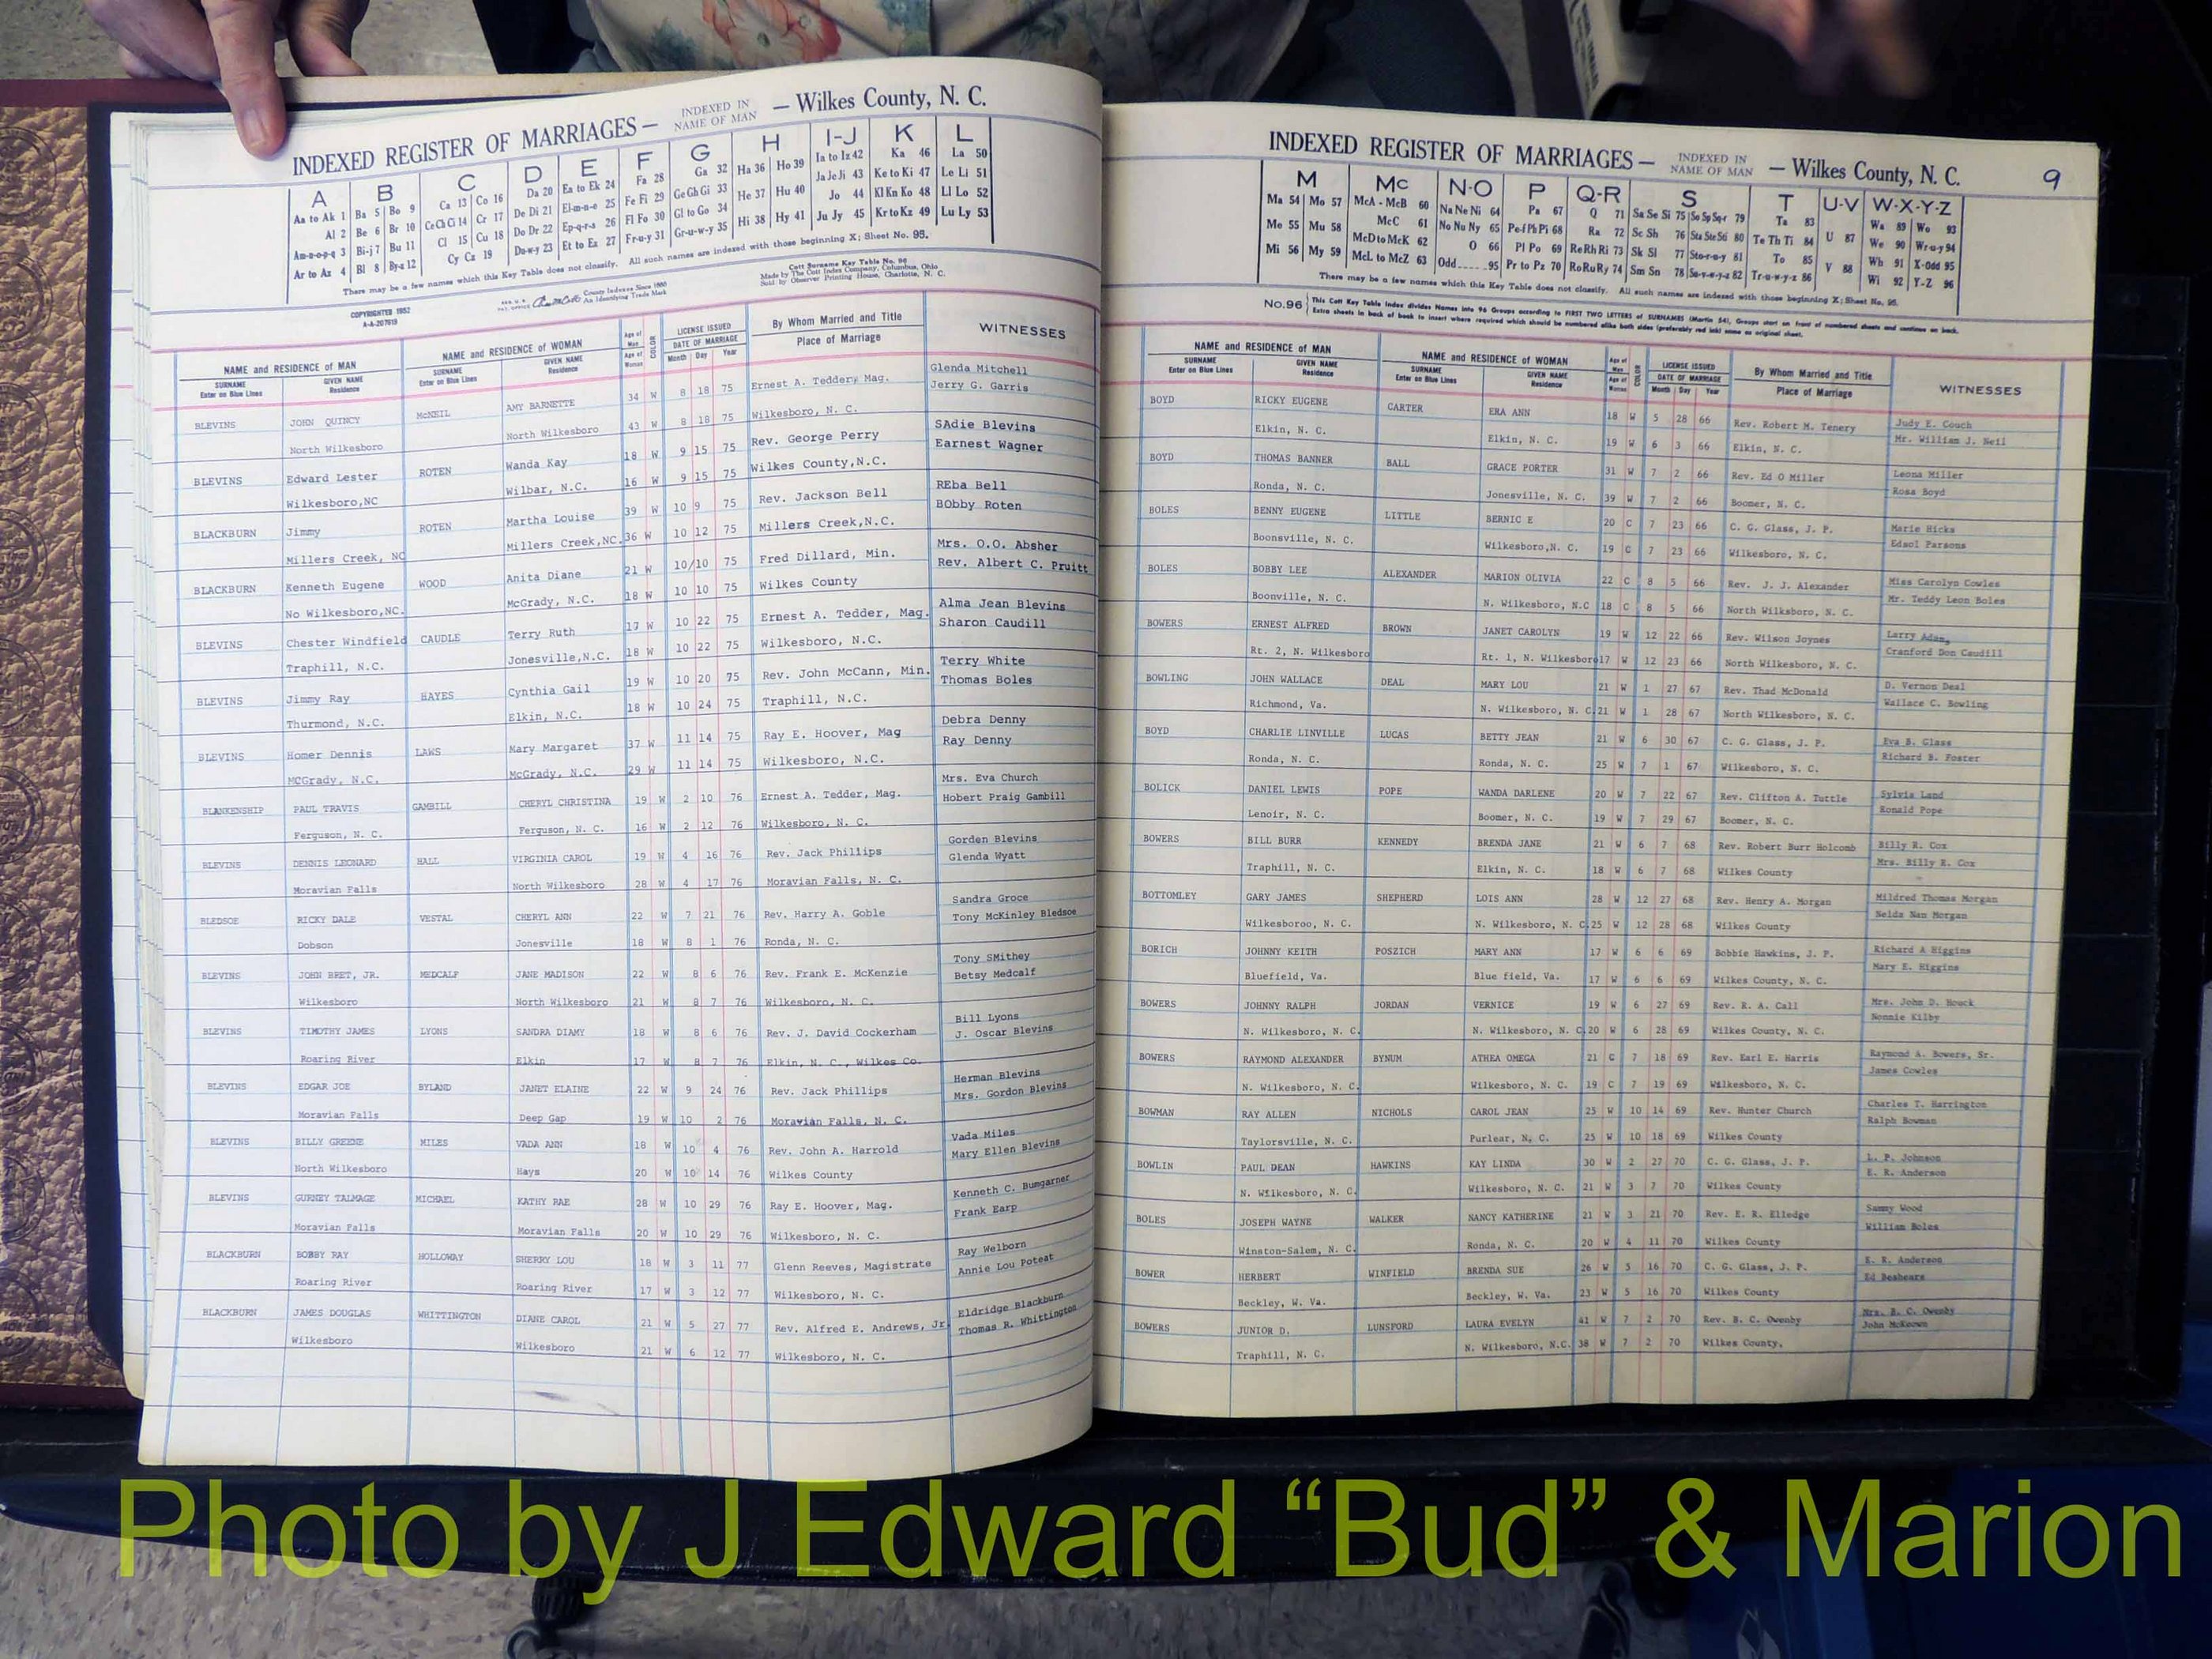 INDEXED REGISTER OF MARRIAGES — INDEXED IN NAME OF MAN — Wilkes County, N. C.
A B C D E F G H I-J K L
Aa to Ak 1 Ba 5 Bo 9 Ca 13 Co 16 Da 20 Ea to Ek 24 Fa 28 Ga 32 Ha 36 Ho 39 Ia to Iz 42 Ka 46 La 50
Al 2 Be 6 Br 10 Ce Ch Ci 14 Cr 17 De Di 21 El-m-n-e 25 Fe Fi 29 Ge Gh Gi 33 He 37 Hu 40 Ja Je Ji 43 Ke to Ki 47 Le Li 51
Am-n-o-p-q 3 Bi-j 7 Bu 11 Cl 15 Cu 18 Do Dr 22 Ep-q-r-s 26 Fl Fo 30 Gl to Go 34 Hi 38 Hy 41 Jo 44 Kl Kn Ko 48 Ll Lo 52
Ar to Az 4 Bl 8 By-z 12 Cy Cz 19 Du-w-y 23 Et to Ez 27 Fr-u-y 31 Gr-u-w-y 35 Ju Jy 45 Kr to Kz 49 Lu Ly 53
There may be a few names which this Key Table does not classify. All such names are indexed with those beginning X; Sheet No. 95.
COPYRIGHTED 1952
A-A-207919
County Indexes Since 1880
An Identifying Trade Mark
Cott Surname Key Table No. 96
Made by The Cott Index Company, Columbus, Ohio
Sold by Observer Printing House, Charlotte, N. C.
NAME and RESIDENCE of MAN NAME and RESIDENCE of WOMAN Age of Man COLOR LICENSE ISSUED By Whom Married and Title WITNESSES
SURNAME Enter on Blue Lines GIVEN NAME Residence SURNAME Enter on Blue Lines GIVEN NAME Residence Age of Woman DATE OF MARRIAGE Month Day Year Place of Marriage
BLEVINS JOHN QUINCY McNEIL AMY BARNETTE 34 W 8 18 75 Ernest A. Tedder, Mag. Glenda Mitchell
North Wilkesboro North Wilkesboro 43 W 8 18 75 Wilkesboro, N. C. Jerry G. Garris
BLEVINS Edward Lester ROTEN Wanda Kay 18 W 9 15 75 Rev. George Perry SAdie Blevins
Wilkesboro,NC Wilbar, N.C. 16 W 9 15 75 Wilkes County,N.C. Earnest Wagner
BLACKBURN Jimmy ROTEN Martha Louise 39 W 10 9 75 Rev. Jackson Bell REba Bell
Millers Creek, NC Millers Creek,NC. 36 W 10 12 75 Millers Creek,N.C. BObby Roten
BLACKBURN Kenneth Eugene WOOD Anita Diane 21 W 10/10 75 Fred Dillard, Min. Mrs. O.O. Absher
No Wilkesboro,NC. McGrady, N.C. 18 W 10 10 75 Wilkes County Rev. Albert C. Pruitt
BLEVINS Chester Windfield CAUDLE Terry Ruth 17 W 10 22 75 Ernest A. Tedder, Mag. Alma Jean Blevins
Traphill, N.C. Jonesville,N.C. 18 W 10 22 75 Wilkesboro, N.C. Sharon Caudill
BLEVINS Jimmy Ray HAYES Cynthia Gail 19 W 10 20 75 Rev. John McCann, Min. Terry White
Thurmond, N.C. Elkin, N.C. 18 W 10 24 75 Traphill, N.C. Thomas Boles
BLEVINS Homer Dennis LAWS Mary Margaret 37 W 11 14 75 Ray E. Hoover, Mag Debra Denny
MCGrady, N.C. McGrady, N.C. 29 W 11 14 75 Wilkesboro, N.C. Ray Denny
BLANKENSHIP PAUL TRAVIS GAMBILL CHERYL CHRISTINA 19 W 2 10 76 Ernest A. Tedder, Mag. Mrs. Eva Church
Ferguson, N. C. Ferguson, N. C. 16 W 2 12 76 Wilkesboro, N. C. Hobert Praig Gambill
BLEVINS DENNIS LEONARD HALL VIRGINIA CAROL 19 W 4 16 76 Rev. Jack Phillips Gorden Blevins
Moravian Falls North Wilkesboro 28 W 4 17 76 Moravian Falls, N. C. Glenda Wyatt
BLEDSOE RICKY DALE VESTAL CHERYL ANN 22 W 7 21 76 Rev. Harry A. Goble Sandra Groce
Dobson Jonesville 18 W 8 1 76 Ronda, N. C. Tony McKinley Bledsoe
BLEVINS JOHN BRET, JR. MEDCALF JANE MADISON 22 W 8 6 76 Rev. Frank E. McKenzie Tony SMithey
Wilkesboro North Wilkesboro 21 W 8 7 76 Wilkesboro, N. C. Betsy Medcalf
BLEVINS TIMOTHY JAMES LYONS SANDRA DIAMY 18 W 8 6 76 Rev. J. David Cockerham Bill Lyons
Roaring River Elkin 17 W 8 7 76 Elkin, N. C., Wilkes Co. J. Oscar Blevins
BLEVINS EDGAR JOE BYLAND JANET ELAINE 22 W 9 24 76 Rev. Jack Phillips Herman Blevins
Moravian Falls Deep Gap 19 W 10 2 76 Moravian Falls, N. C. Mrs. Gordon Blevins
BLEVINS BILLY GREENE MILES VADA ANN 18 W 10 4 76 Rev. John A. Harrold Vada Miles
North Wilkesboro Hays 20 W 10 14 76 Wilkes County Mary Ellen Blevins
BLEVINS GURNEY TALMAGE MICHAEL KATHY RAE 28 W 10 29 76 Ray E. Hoover, Mag. Kenneth C. Bumgarner
Moravian Falls Moravian Falls 20 W 10 29 76 Wilkesboro, N. C. Frank Earp
BLACKBURN BOBBY RAY HOLLOWAY SHERRY LOU 18 W 3 11 77 Glenn Reeves, Magistrate Ray Welborn
Roaring River Roaring River 17 W 3 12 77 Wilkesboro, N. C. Annie Lou Poteat
BLACKBURN JAMES DOUGLAS WHITTINGTON DIANE CAROL 21 W 5 27 77 Rev. Alfred E. Andrews, Jr Eldridge Blackburn
Wilkesboro Wilkesboro 21 W 6 12 77 Wilkesboro, N. C. Thomas R. Whittington
INDEXED REGISTER OF MARRIAGES — INDEXED IN NAME OF MAN — Wilkes County, N. C. 9
M Mc N-O P Q-R S T U-V W-X-Y-Z
Ma 54 Mo 57 McA - McB 60 Na Ne Ni 64 Pa 67 Q 71 Sa Se Si 75 So Sp Sq-r 79 Ta 83 Wa 89 Wo 93
Me 55 Mu 58 McC 61 No Nu Ny 65 Pe-f Ph Pi 68 Ra 72 Sc Sh 76 Sta Ste Sti 80 Te Th Ti 84 U 87 We 90 Wr-u-y 94
Mi 56 My 59 McD to McK 62 O 66 Pl Po 69 Re Rh Ri 73 Sk Sl 77 Sto-r-u-y 81 To 85 V 88 Wh 91 X-Odd 95
McL to McZ 63 Odd 95 Pr to Pz 70 Ro Ru Ry 74 Sm Sn 78 Su-v-w-y-z 82 Tr-u-w-y-z 86 Wi 92 Y-Z 96
There may be a few names which this Key Table does not classify. All such names are indexed with those beginning X; Sheet No. 95.
No.96 This Cott Key Table Index divides Names into 96 Groups according to FIRST TWO LETTERS of SURNAMES (Martin 54), Groups start on front of numbered sheets and continue on back.
Extra sheets in back of book to insert where required which should be numbered alike both sides (preferably red ink) same as original sheet.
NAME and RESIDENCE of MAN NAME and RESIDENCE of WOMAN Age of Man COLOR LICENSE ISSUED By Whom Married and Title WITNESSES
SURNAME Enter on Blue Lines GIVEN NAME Residence SURNAME Enter on Blue Lines GIVEN NAME Residence Age of Woman DATE OF MARRIAGE Month Day Year Place of Marriage
BOYD RICKY EUGENE CARTER ERA ANN 18 W 5 28 66 Rev. Robert M. Tenery Judy E. Couch
Elkin, N. C. Elkin, N. C. 19 W 6 3 66 Elkin, N. C. Mr. William J. Neil
BOYD THOMAS BANNER BALL GRACE PORTER 31 W 7 2 66 Rev. Ed O Miller Leona Miller
Ronda, N. C. Jonesville, N. C. 39 W 7 2 66 Boomer, N. C. Rosa Boyd
BOLES BENNY EUGENE LITTLE BERNIC E 20 C 7 23 66 C. G. Glass, J. P. Marie Hicks
Boonsville, N. C. Wilkesboro,N. C. 19 C 7 23 66 Wilkesboro, N. C. Edsol Parsons
BOLES BOBBY LEE ALEXANDER MARION OLIVIA 22 C 8 5 66 Rev. J. J. Alexander Miss Carolyn Cowles
Boonville, N. C. N. Wilkesboro, N.C 18 C 8 5 66 North Wilksboro, N. C. Mr. Teddy Leon Boles
BOWERS ERNEST ALFRED BROWN JANET CAROLYN 19 W 12 22 66 Rev. Wilson Joynes Larry Adams
Rt. 2, N. Wilkesboro Rt. 1, N. Wilkesboro 17 W 12 23 66 North Wilkesboro, N. C. Cranford Don Caudill
BOWLING JOHN WALLACE DEAL MARY LOU 21 W 1 27 67 Rev. Thad McDonald D. Vernon Deal
Richmond, Va. N. Wilkesboro, N. C. 21 W 1 28 67 North Wilkesboro, N. C. Wallace C. Bowling
BOYD CHARLIE LINVILLE LUCAS BETTY JEAN 21 W 6 30 67 C. G. Glass, J. P. Eva B. Glass
Ronda, N. C. Ronda, N. C. 25 W 7 1 67 Wilkesboro, N. C. Richard B. Foster
BOLICK DANIEL LEWIS POPE WANDA DARLENE 20 W 7 22 67 Rev. Clifton A. Tuttle Sylvia Land
Lenoir, N. C. Boomer, N. C. 19 W 7 29 67 Boomer, N. C. Ronald Pope
BOWERS BILL BURR KENNEDY BRENDA JANE 21 W 6 7 68 Rev. Robert Burr Holcomb Billy R. Cox
Traphill, N. C. Elkin, N. C. 18 W 6 7 68 Wilkes County Mrs. Billy R. Cox
BOTTOMLEY GARY JAMES SHEPHERD LOIS ANN 28 W 12 27 68 Rev. Henry A. Morgan Mildred Thomas Morgan
Wilkesboroo, N. C. N. Wilkesboro, N. C. 25 W 12 28 68 Wilkes County Nelda Nan Morgan
BORICH JOHNNY KEITH POSZICH MARY ANN 17 W 6 6 69 Bobbie Hawkins, J. P. Richard A Higgins
Bluefield, Va. Blue field, Va. 17 W 6 6 69 Wilkes County, N. C. Mary E. Higgins
BOWERS JOHNNY RALPH JORDAN VERNICE 19 W 6 27 69 Rev. R. A. Call Mrs. John D. Houck
N. Wilkesboro, N. C. N. Wilkesboro, N. C. 20 W 6 28 69 Wilkes County, N. C. Nonnie Kilby
BOWERS RAYMOND ALEXANDER BYNUM ATHEA OMEGA 21 C 7 18 69 Rev. Earl E. Harris Raymond A. Bowers, Sr.
N. Wilkesboro, N. C. Wilkesboro, N. C. 19 C 7 19 69 Wilkesboro, N. C. James Cowles
BOWMAN RAY ALLEN NICHOLS CAROL JEAN 25 W 10 14 69 Rev. Hunter Church Charles T. Harrington
Taylorsville, N. C. Purlear, N. C. 25 W 10 18 69 Wilkes County Ralph Bowman
BOWLIN PAUL DEAN HAWKINS KAY LINDA 30 W 2 27 70 C. G. Glass, J. P. L. P. Johnson
N. Wilkesboro, N. C. Wilkesboro, N. C. 21 W 3 7 70 Wilkes County E. R. Anderson
BOLES JOSEPH WAYNE WALKER NANCY KATHERINE 21 W 3 21 70 Rev. E. R. Elledge Sammy Wood
Winston-Salem, N. C. Ronda, N. C. 20 W 4 11 70 Wilkes County William Boles
BOWER HERBERT WINFIELD BRENDA SUE 26 W 5 16 70 C. G. Glass, J. P. E. R. Anderson
Beckley, W. Va. Beckley, W. Va. 23 W 5 16 70 Wilkes County Ed Beshears
BOWERS JUNIOR D. LUNSFORD LAURA EVELYN 41 W 7 2 70 Rev. B. C. Owenby Mrs. B. C. Owenby
Traphill, N. C. N. Wilkesboro, N.C. 38 W 7 2 70 Wilkes County. John McKeown
Photo by J Edward “Bud” & Marion